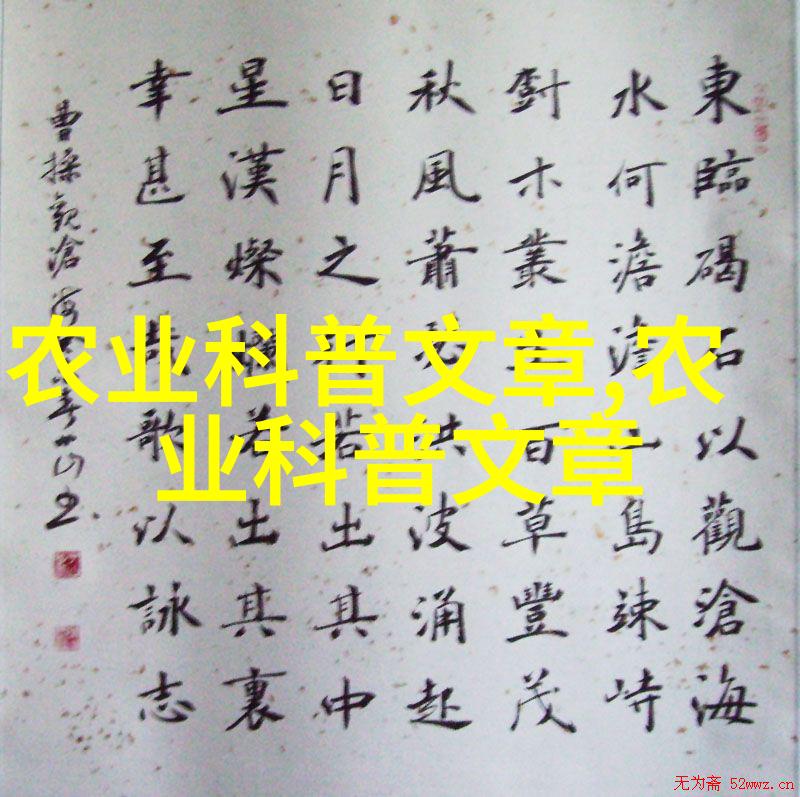 農业科普文章,农
业科普文章
東臨碣石以觀滄海
水何澹澹山島竦峙
樹木叢生百草豐茂
秋風蕭瑟洪波涌起
日月之行若出其中
星漢燦爛若出其裏
幸甚至哉歌以詠志
曹操觀滄海
无为斋 52wwz.cn